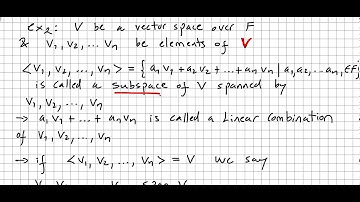 ex2: V be a vector space over F
& V₁, V₂, ... Vn be elements of V
<V₁, V₂, ..., Vn> = { a₁V₁ + a₂V₂ + ... + anVn | a₁, a₂, ... an, ∈F}
is called a subspace of V spanned by
V₁, V₂, ..., Vn
→ a₁V₁ + ... + anVn is called a Linear Combination
of V₁, V₂, ..., Vn
→ if <V₁, V₂, ..., Vn> = V we say